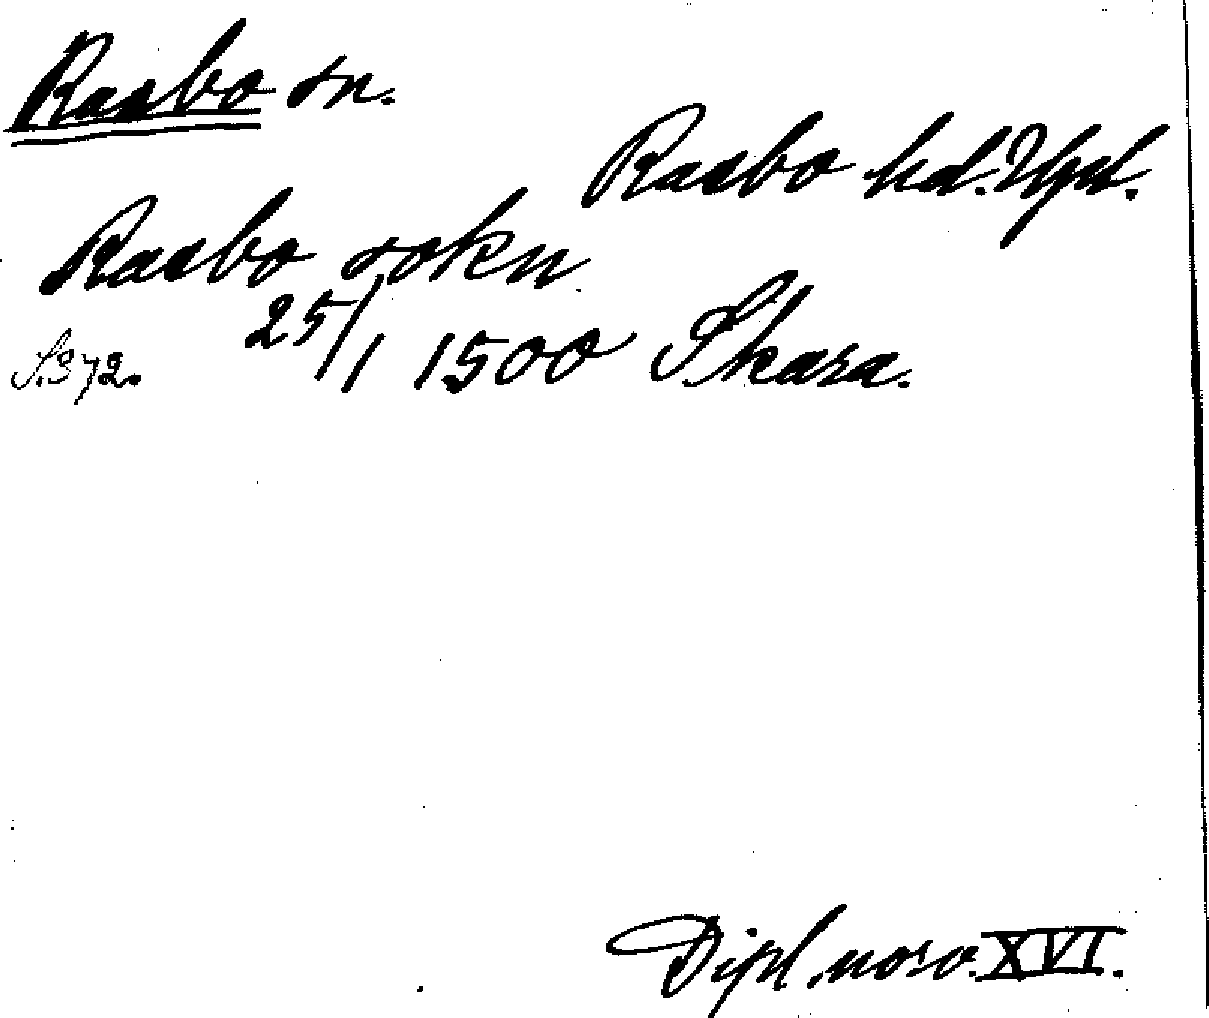 Rasbo sn.
Rasbo hd. Upl.
Rasbo sokn
25/1 1500 Skara.
S. 372.
Dipl. norv. XVI.